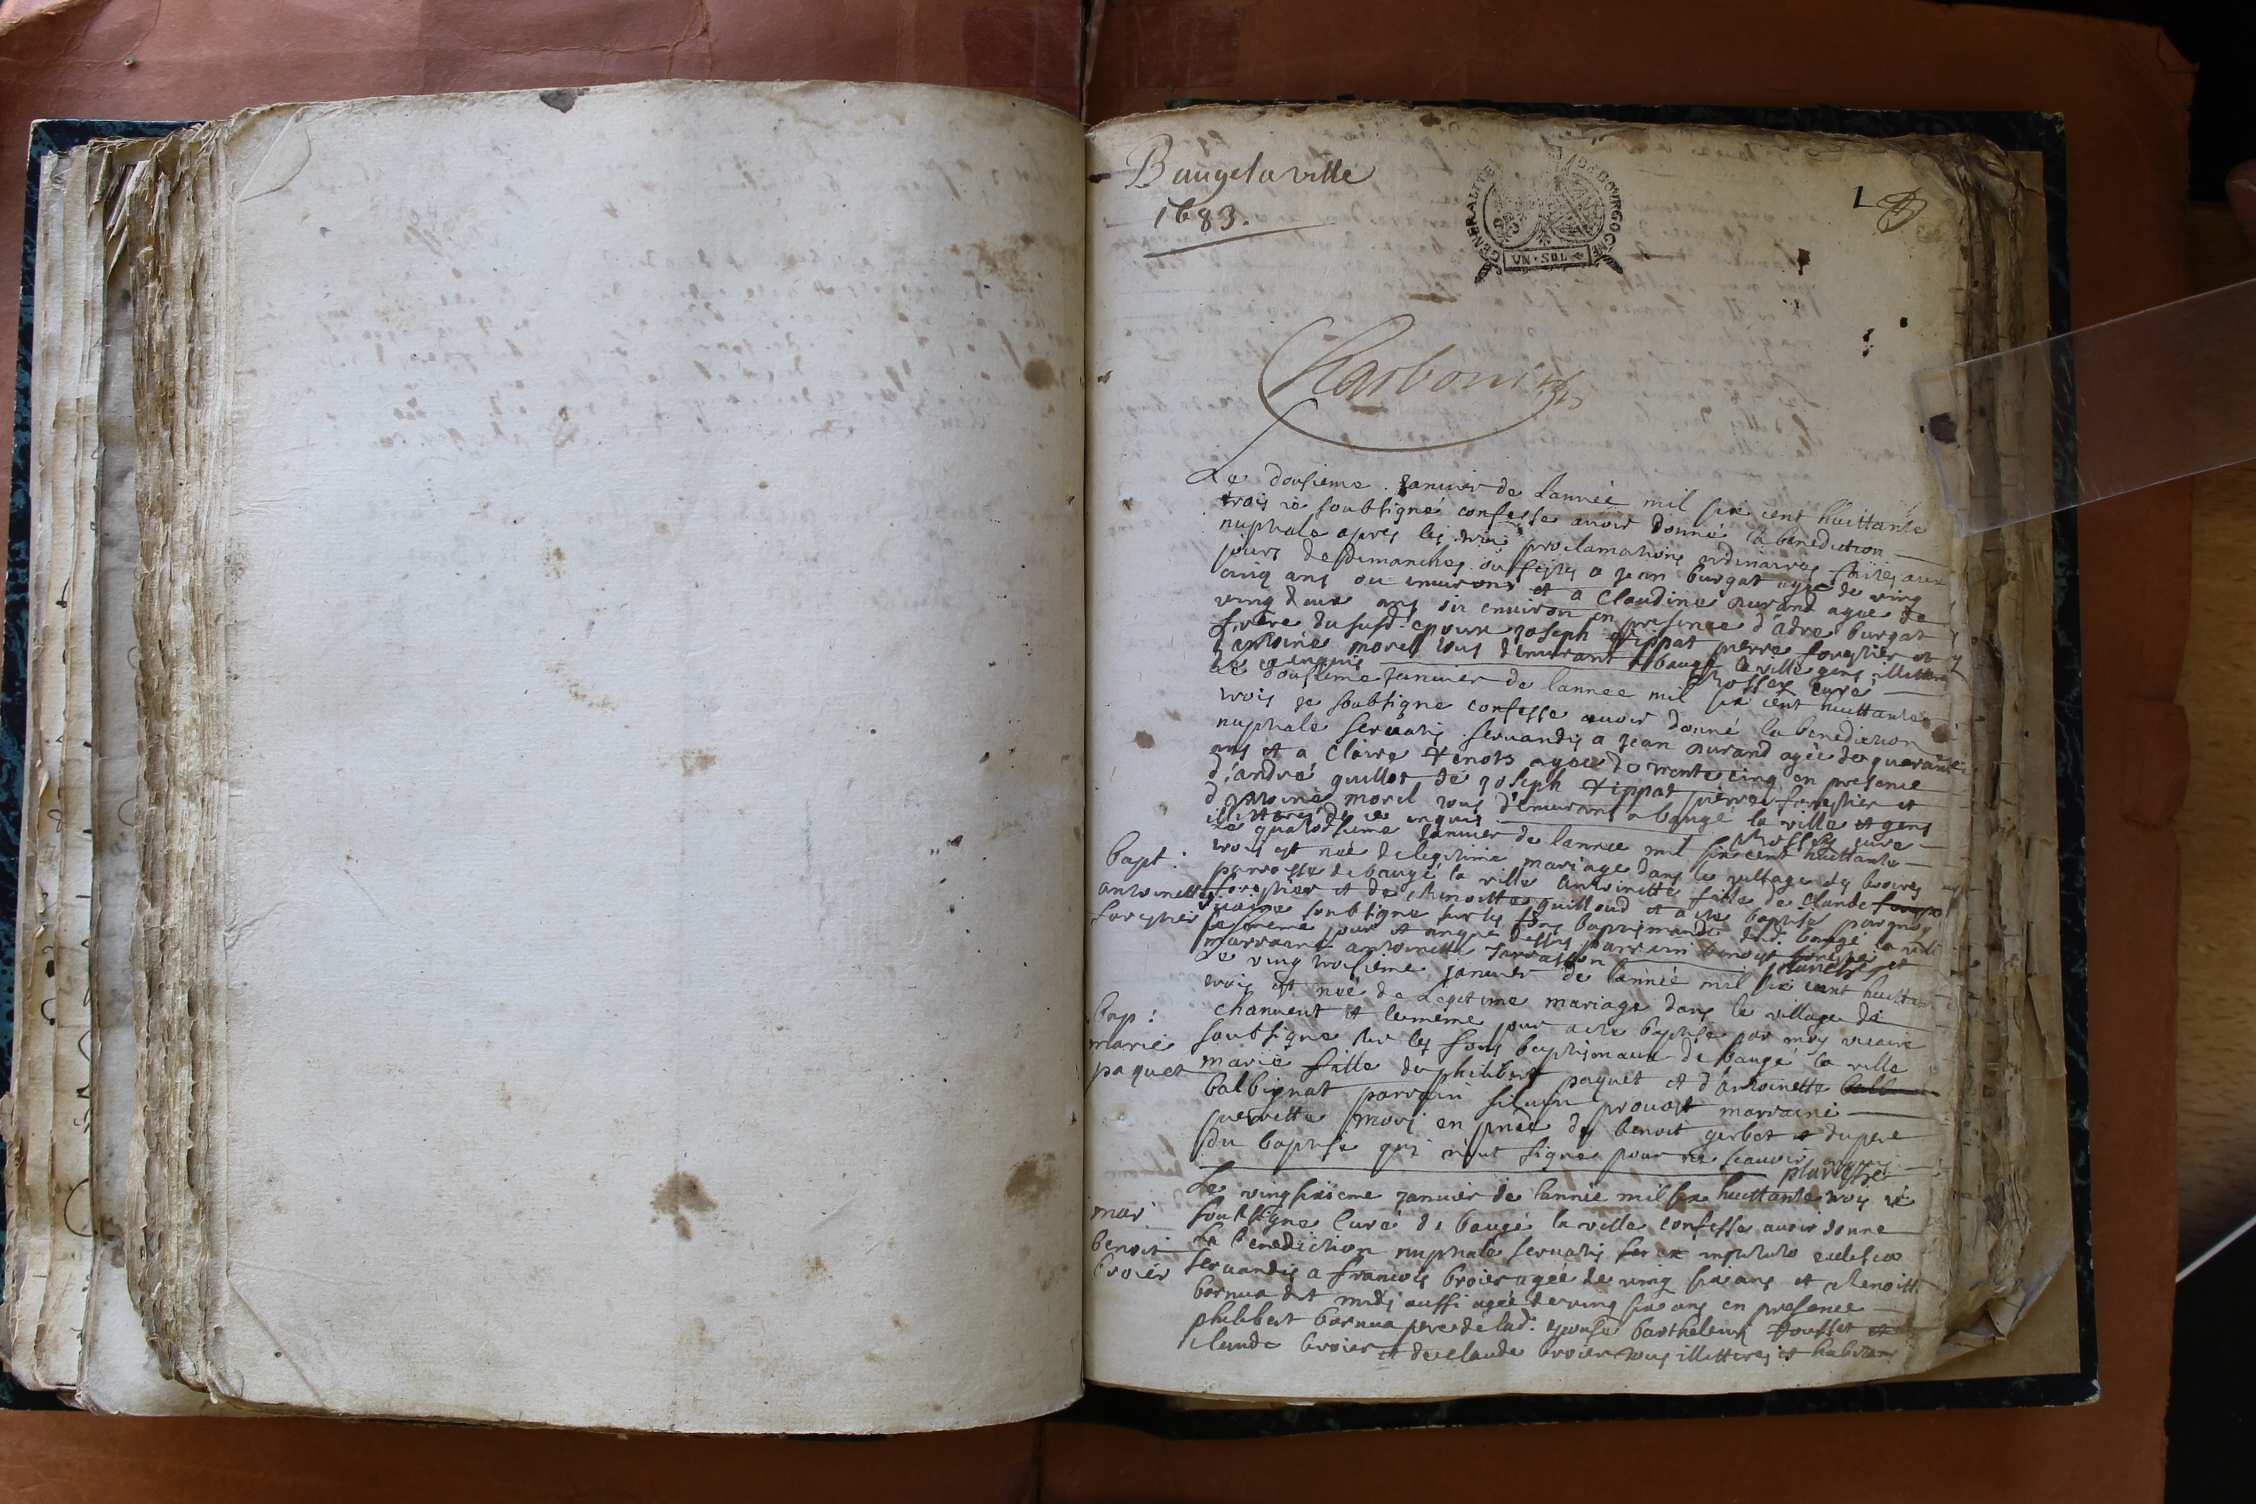 Baugelaville
1683.
GENERALITE DE BOVRGOGNE
VN·SOL
1
Charbonier
Le dousieme Januier de lannèe mil six cent huittante
trois ie soubsigné confesse auoir donné la benediction
nuptiale apres les trois proclamations ordinaires faites aux
jours de dimanches ou festes a jean burgat agé de ving
cinq ans ou enuirons et a Claudine durand agee de
ving deux ans ou enuiron en presence d'adre burgat
frere du susd. epoux joseph tippat pierre forestier et
d'antoine morel tous demeurant a baugé la ville gens illitteres
de ce enquis curé
Le dousieme Januier de lannee mil six cent huittante
trois je soubsigne confesse auoir donné la benediction
nuptiale seruatis seruandis a jean durand agée de quarante
ans et a Claire agee de trente cinq en presence
d'andré guillot de joseph tippat pierre forestier et
d'antoine morel tous demeurans a baugé la ville et gens
illitteres de ce enquis curé
bapt:
antoinette
forestier
Le quatorsieme Januier de lannee mil six cent huittante
trois est née de legitime mariage dans le village des
parroisse de baugé la ville antoinette fille de Claude
forestier et de benoitte guilloud et a este baptisé par moy
vicaire soubsigné sur les fons baptismaux dud. baugé la ville
le meme jour et an que dessus parrain benoist et
marraine antoinette
bap:
marie
paquet
Le ving troisieme januier de lannée mil six cent huittante
trois est née de legitime mariage dans le village de
chanuent et le meme jour a este baptisé par moy vicaire
soubsigne sur les fons baptismaux de baugé la ville
marie fille de philibert paquet et d'antoinette
balbignat parrain prouost marraine
pierrette en pnce de benoit gerbet et du pere
du baptisé qui n'ont signe pour ne scauoir enquis
mar:
benoit
broier
Le ving sixieme januier de lannée mil six huittante trois ie
soubsigne Curé de baugé la ville confesse auoir donne
la benediction nuptiale seruatis
seruandis a francois broier agée de ving six ans et a benoitte
bornua aussi agée de ving six ans en presence
philibert bornua pere de lad. epouse barthelemy et
claude broier et de claude broier tous illitteres et habitans